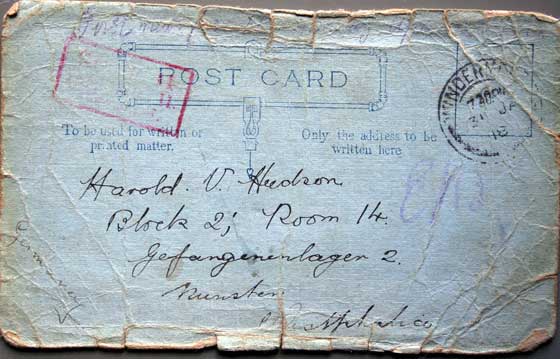 POST CARD
To be used for written or
printed matter.
Only the address to be
written here
Harold. V. Hudson
Block 2; Room 14.
Gefangenenlager 2.
Munster
Westphalia
Germany
7 30 PM
JA
18